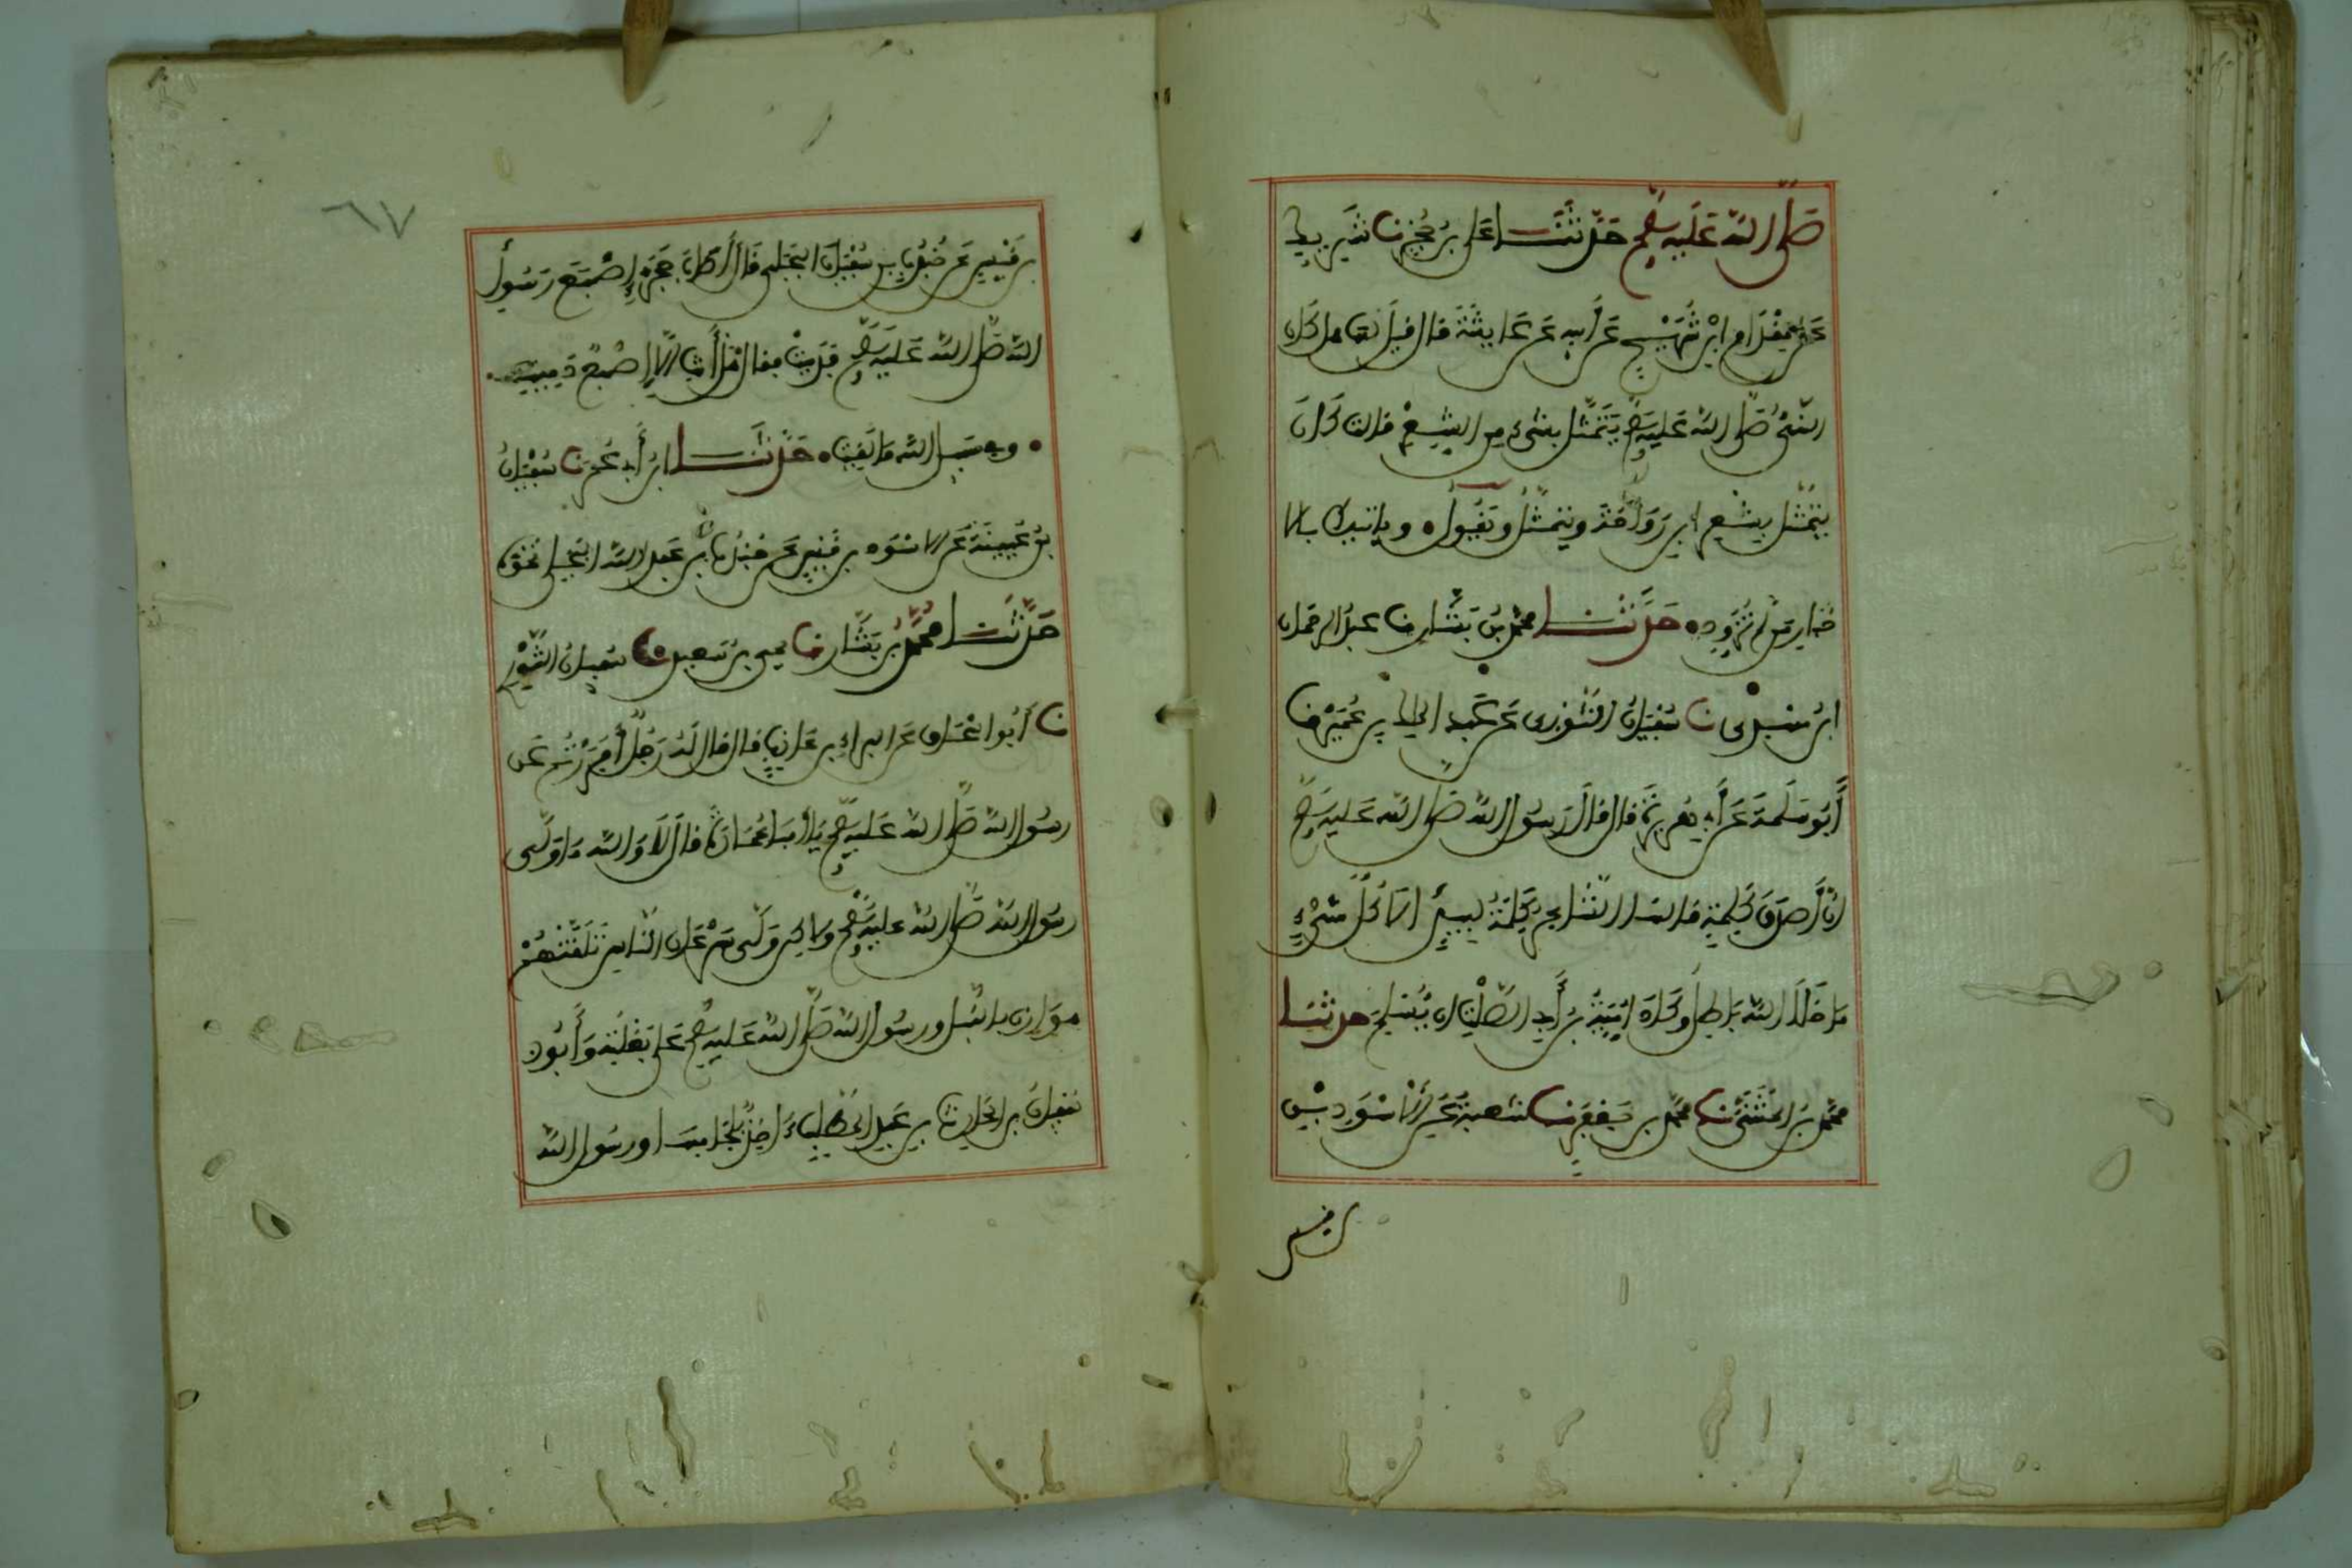 صَلَّى اللّه عَلَيْهِ وَسَلَّم حَدَّثَنَا علي بن حُجْر نا شَرِيك
عَن المِقْدَام ابْن شُرَيْح عَن أَبِيه عَن عَائِشَة قال قيل لها هل كان
النّبيُّ صَلّى اللّه عَلَيْهِ وَسَلَّم يَتَمَثَّل بشيء مِن الشِّعْر قالت كَانَ
يتمثّل بِشعر ابن رَوَاحَة ويتمثّل ويَقُول ويأتيك بالا
خْبَار مَن لم تُزَوِّدِ حَدَّثَنَا محمد بن بَشَّار نا عبد الرحمان
ابن مهدي نا سُفْيَان الثَّوْرِي عَن عَبد الملك بن عُمَيْر نا
أَبُو سَلَمَة عَن أَبي هُرَيْرَة قال قال رَسُول اللّه صَلّى اللّه عَليهِ وَسَلَّم
إنّ أَصدَقَ كَلِمَةٍ قالها الشَّاعِر كَلِمَةُ لَبِيدٍ الا كُلّ شَيْءٍ
مَا خَلَا اللّه بَاطِل وكَادَ أُمَيَّةُ بن أبي الصَّلْت ان يُسْلِمَ حدثنا
محمد بن المُثَنَّى نا محمد بن جَعْفَر نا شعبة عَن الاسْوَد بْن
قيس
٦٧
بن قَيْسٍ عَن جُنْدُبِ بن سُفْيَان البَجَلي قَال أَصَابَ حَجَرٌ إِصْبَعَ رَسُول
اللّه صَلّى اللّه عَليهِ وَسَلَّم فدَمِيَتْ فقال هَلْ أَنتِ الّا إِصْبعٌ دَمِيتِ
وفي سبيل اللّه مَا لَقِيتِ حَدَّثَنَا ابن أَبي عُمَر نا سُفْيَانُ
بنُ عُيَيْنَة عَن الاسْوَد بن قَيْسٍ عَن جُنْدُب بن عَبد اللّه البَجَلي نَحْوَه
حَدَّثَنَا مُحَمَّد بن بَشَّار نا يحيى بن سَعيد نا سُفيانُ الثَّوْرِي
نا أَبُو اِسْحَاق عَن البراء بن عَازِبٍ قال قال لَهُ رَجُلٌ أَفَرَرْتُم عَن
رسُول اللّه صَلّى اللّه عَليهِ وَسَلَّم يَا أَبا عُمَارَة قال لَا وَاللّه مَا وَلّى
رسُول اللّه صَلّى اللّه عليهِ وَسَلَّم ولاكن وَلّى سَرْعَان النَّاس تَلَقَّتْهُمْ
هوَازِن بالنَّبْل ورسُول اللّه صَلّى اللّه عَليهِ وَسَلَّم عَلى بَغْلَتِهِ وَأَبُو
سُفيان بن الحارث بن عَبد المطَّلِب آخِذٌ بلجامها ورسُول اللّه